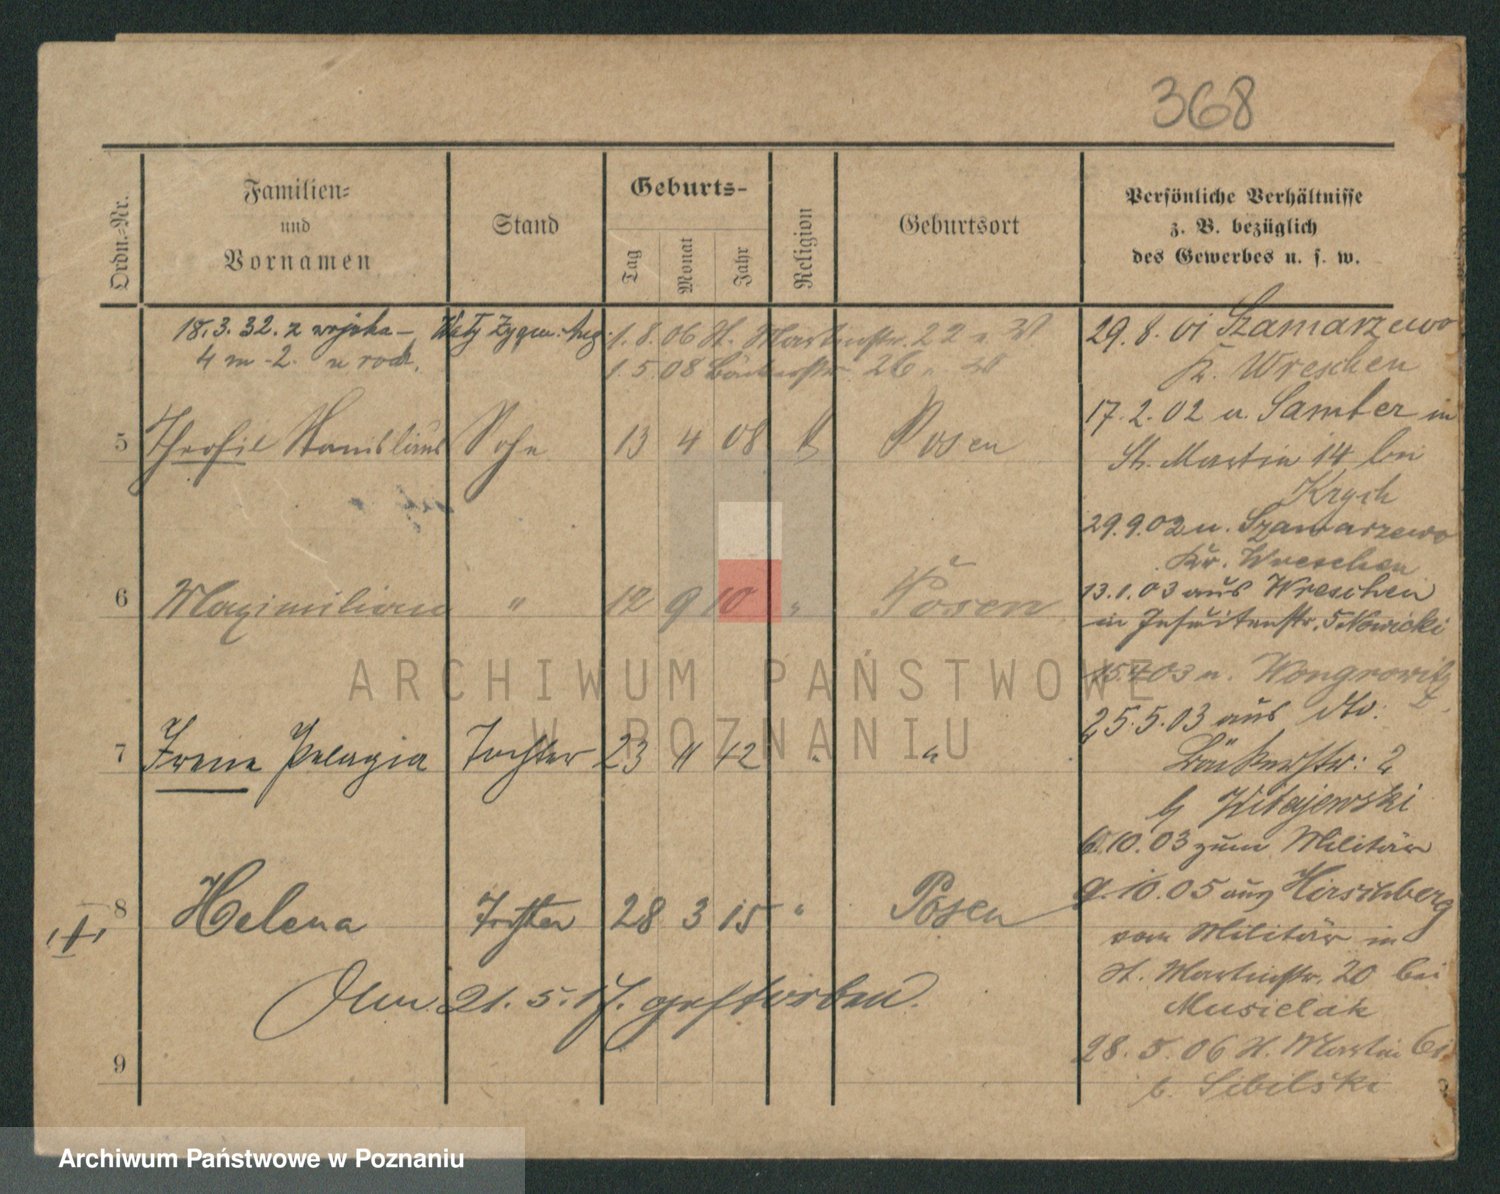 368
Ordn.-Nr.
Familien-
und
Vornamen
Stand
Geburts-
Tag
Monat
Jahr
Religion
Geburtsort
Persönliche Verhältnisse
z. B. bezüglich
des Gewerbes u. s. w.
18.3.32. z wojska – Zygm. Aug.
4 m - 2.
1.8.06 St. Martinstr. 22
1.5.08 Bäckerstr. 26
5 Theofil Stanislaus Sohn 13 4 08 Posen
6 Maximilian " 12 9 10 " Posen
7 Irene Pelagia Tochter 23 11 12 " "
8 Helena Tochter 28 3 15 " Posen
Am 21. 5. 17. gestorben.
9
29.8.01 Szamarzewo
K. Wreschen
17.2.02 a. Samter in
St. Martin 14 bei
Krych
29.9.02 n. Szamarzewo
Kr. Wreschen
13.1.03 aus Wreschen
in Jesuitenstr. 5 Nowicki
15.4.03 n. Wongrowitz
25.5.03 aus dto.
Bäckerstr. 2
b Kitajewski
6.10.03 zum Militär
9.10.05 aus Hirschberg
vom Militär in
St. Martinstr. 20 bei
Musielak
28.5.06 St. Martin
b. Sibilski
ARCHIWUM PAŃSTWOWE
W POZNANIU
Archiwum Państwowe w Poznaniu